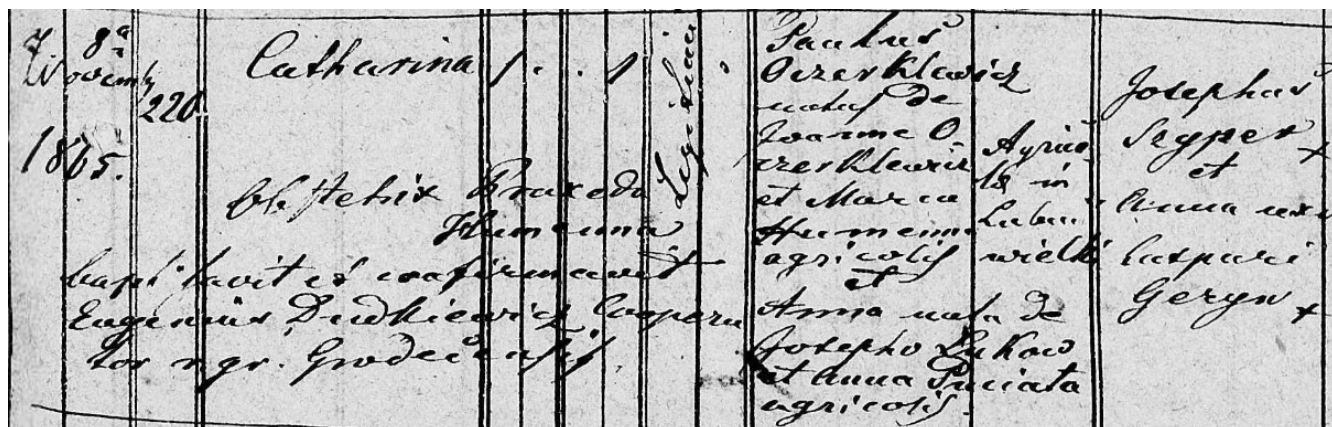 7. 8ª
Novemb
220.
1865.
Catharina / . . /
Obstetrix Praxeda
Humenna
baptisavit et confirmavit
Eugenius Dudkiewicz Coopera
tor r. gr. Grodecensis
Legitimi
Paulus
Oczerklewicz
natus de
Joanne O
czerklewicz
et Maria
Humenna
agricolis
et
Anna nata de
Josepho Lukow
et Anna
agricolis.
Agrico
la in
wielki
Josephus
Szyper
x
et
Anna uxor
Caspari
Geryn
x